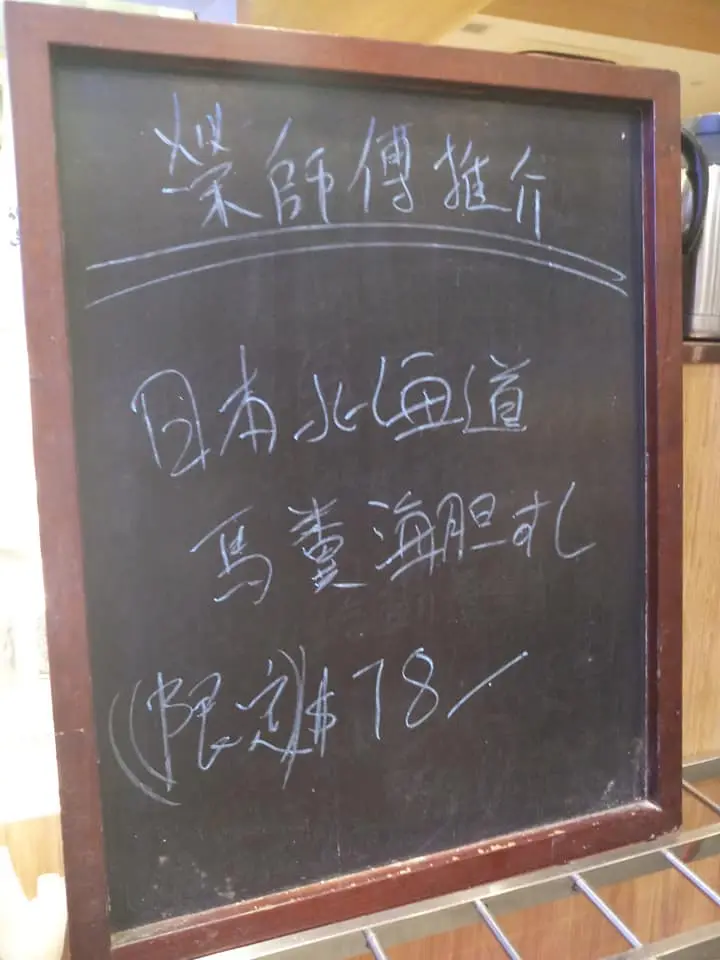 榮師傅推介
日本北海道
馬糞海胆札
(限定)$78/